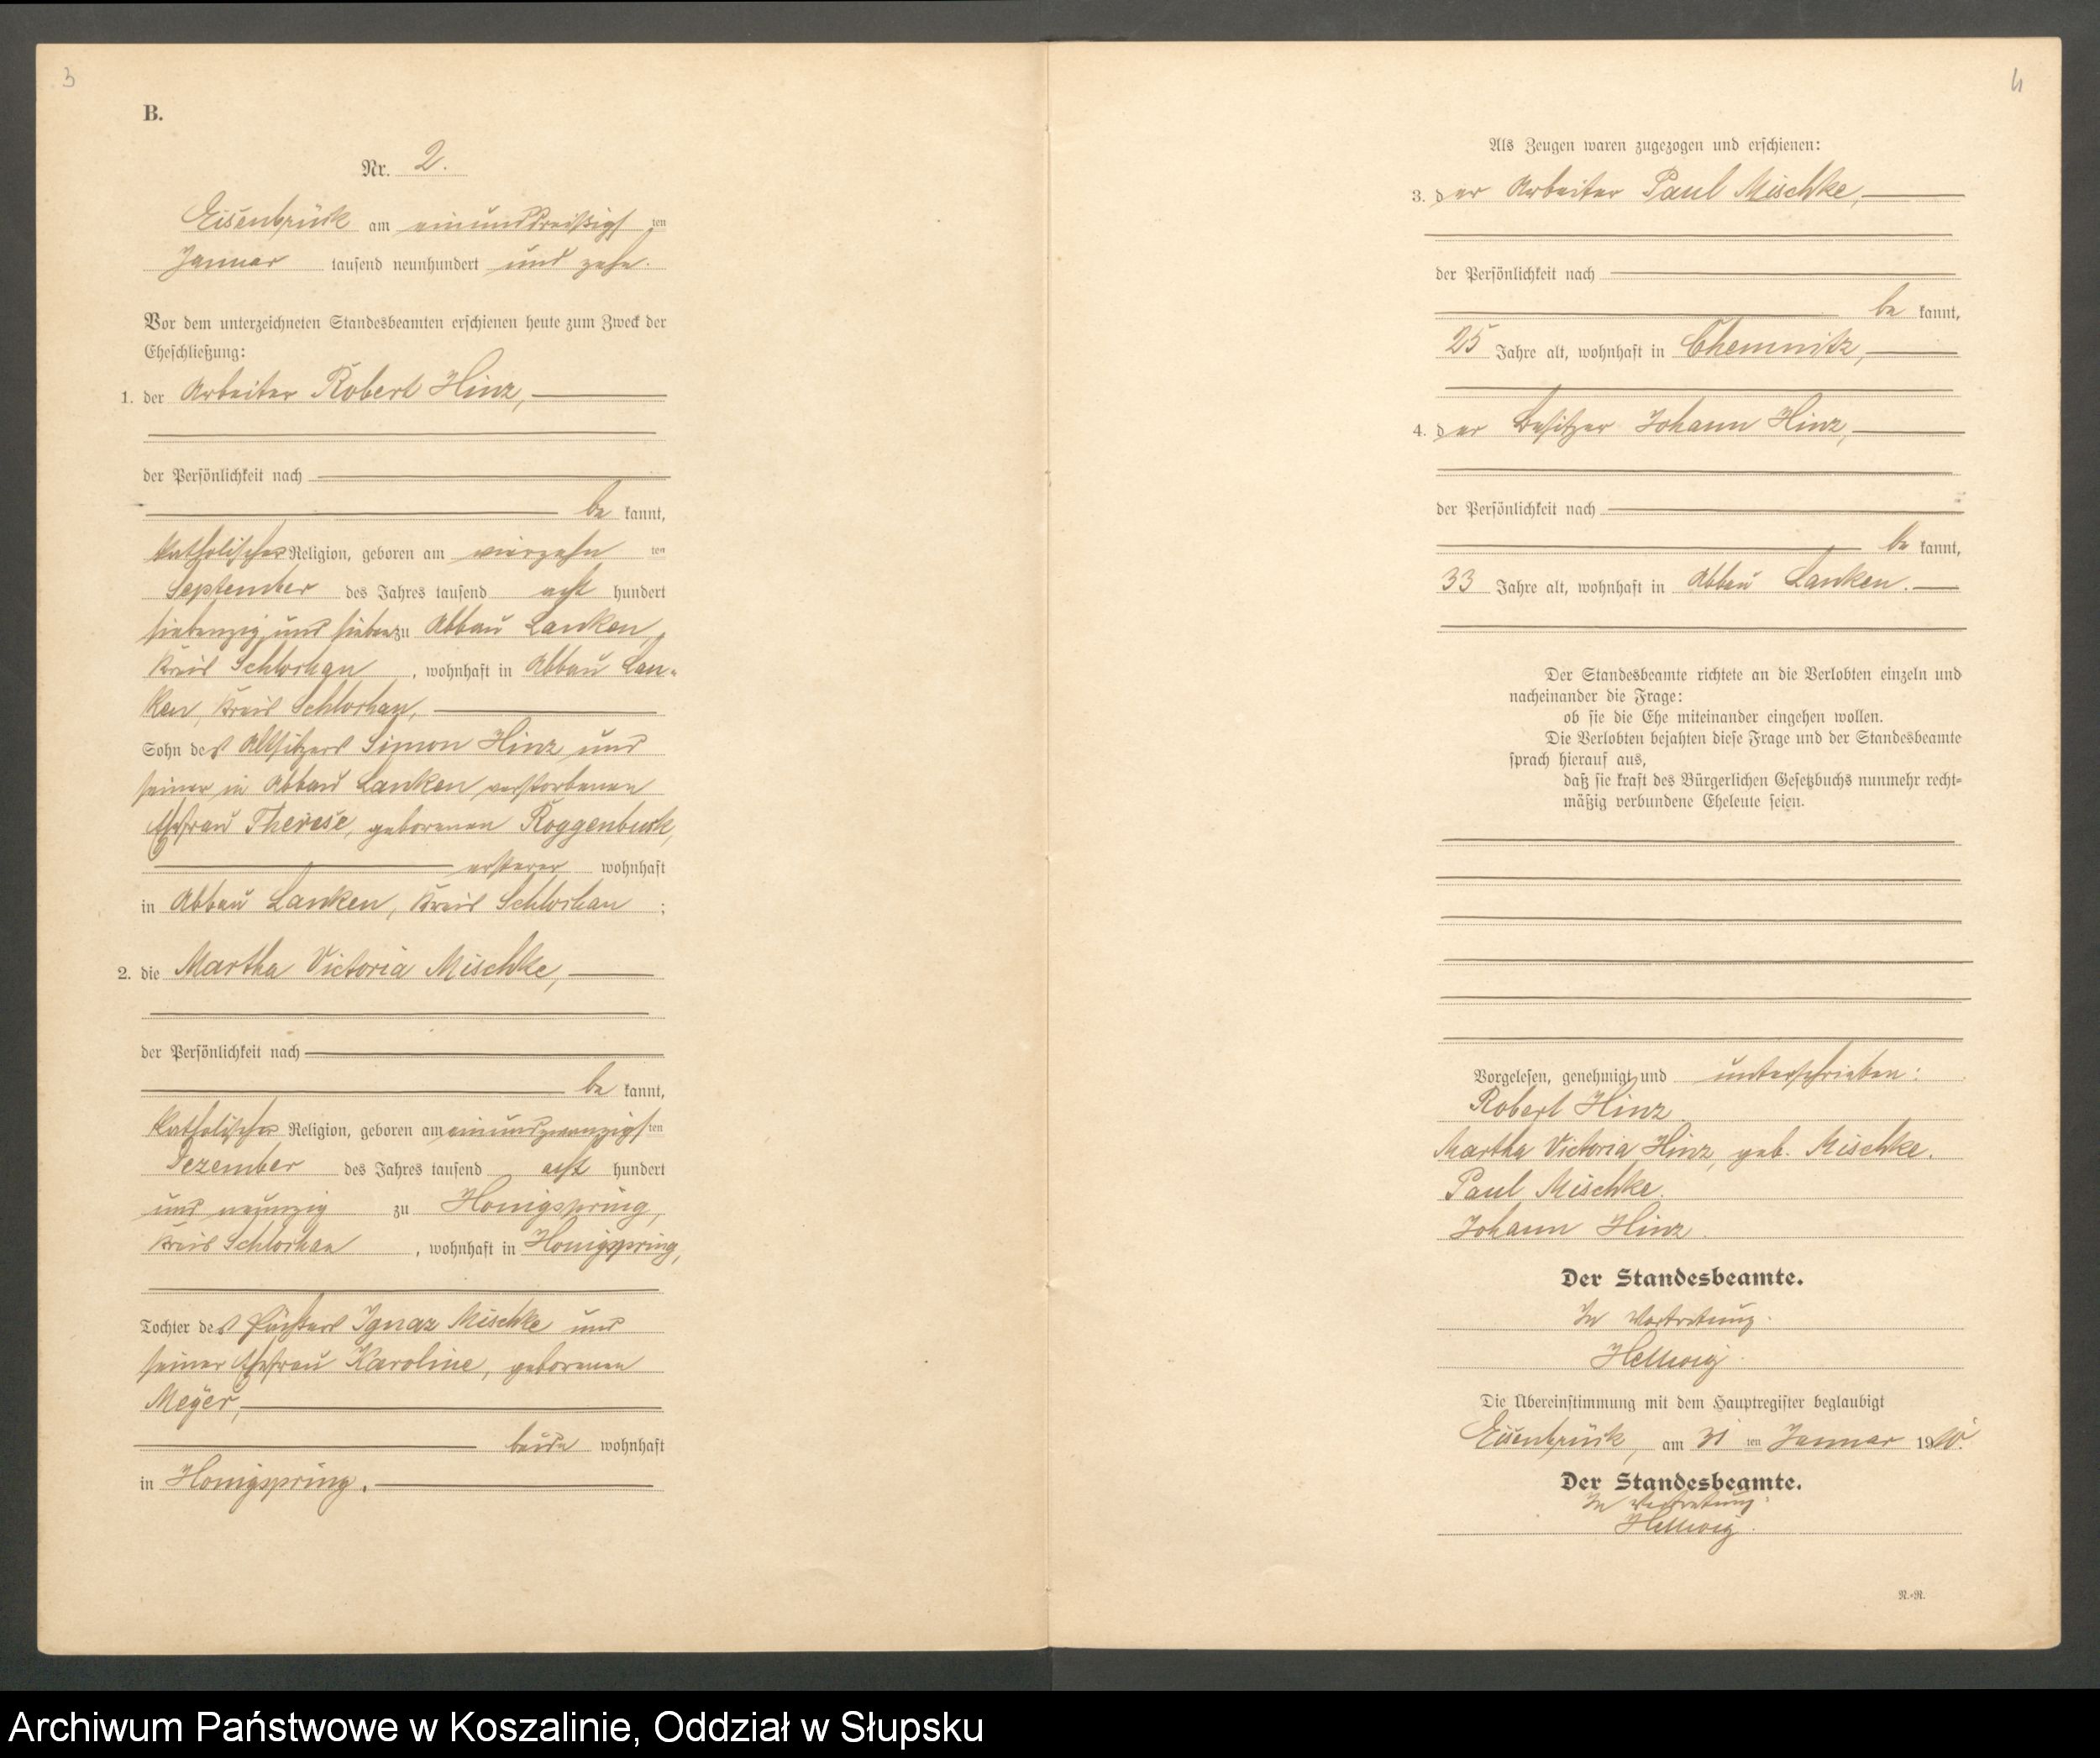 3
B.
Nr. 2.
Eisenbrück am einunddreißigsten
Januar tausend neunhundert und zehn.
Vor dem unterzeichneten Standesbeamten erschienen heute zum Zweck der
Eheschließung:
1. der Arbeiter Robert Hinz,
der Persönlichkeit nach
be kannt,
katholischer Religion, geboren am vierzehn ten
September des Jahres tausend acht hundert
siebenzig und sieben zu Abbau Lanken,
Kreis Schlochau, wohnhaft in Abbau Lan-
ken, Kreis Schlochau,
Sohn des Altsitzers Simon Hinz und
seiner in Abbau Lanken verstorbenen
Ehefrau Therese, geborenen Roggenbuck,
ersterer wohnhaft
in Abbau Lanken, Kreis Schlochau;
2. die Martha Victoria Mischke,
der Persönlichkeit nach
be kannt,
katholischer Religion, geboren am einundzwanzigsten
Dezember des Jahres tausend acht hundert
und neunzig zu Honigspring,
Kreis Schlochau, wohnhaft in Honigspring,
Tochter des Ignaz Mischke und
seiner Ehefrau Karoline, geborenen
Meyer,
beide wohnhaft
in Honigspring.
4
Als Zeugen waren zugezogen und erschienen:
3. der Arbeiter Paul Mischke,
der Persönlichkeit nach
be kannt,
25 Jahre alt, wohnhaft in Chemnitz,
4. der Besitzer Johann Hinz,
der Persönlichkeit nach
be kannt,
33 Jahre alt, wohnhaft in Abbau Lanken.
Der Standesbeamte richtete an die Verlobten einzeln und
nacheinander die Frage:
ob sie die Ehe miteinander eingehen wollen.
Die Verlobten bejahten diese Frage und der Standesbeamte
sprach hierauf aus,
daß sie kraft des Bürgerlichen Gesetzbuchs nunmehr recht-
mäßig verbundene Eheleute seien.
Vorgelesen, genehmigt und unterschrieben:
Robert Hinz.
Martha Victoria Hinz, geb. Mischke.
Paul Mischke.
Johann Hinz.
Der Standesbeamte.
In Vertretung.
Hellwig.
Die Übereinstimmung mit dem Hauptregister beglaubigt
Eisenbrück, am 31 ten Januar 1910.
Der Standesbeamte.
In Vertretung:
Hellwig.
N.-R.
Archiwum Państwowe w Koszalinie, Oddział w Słupsku